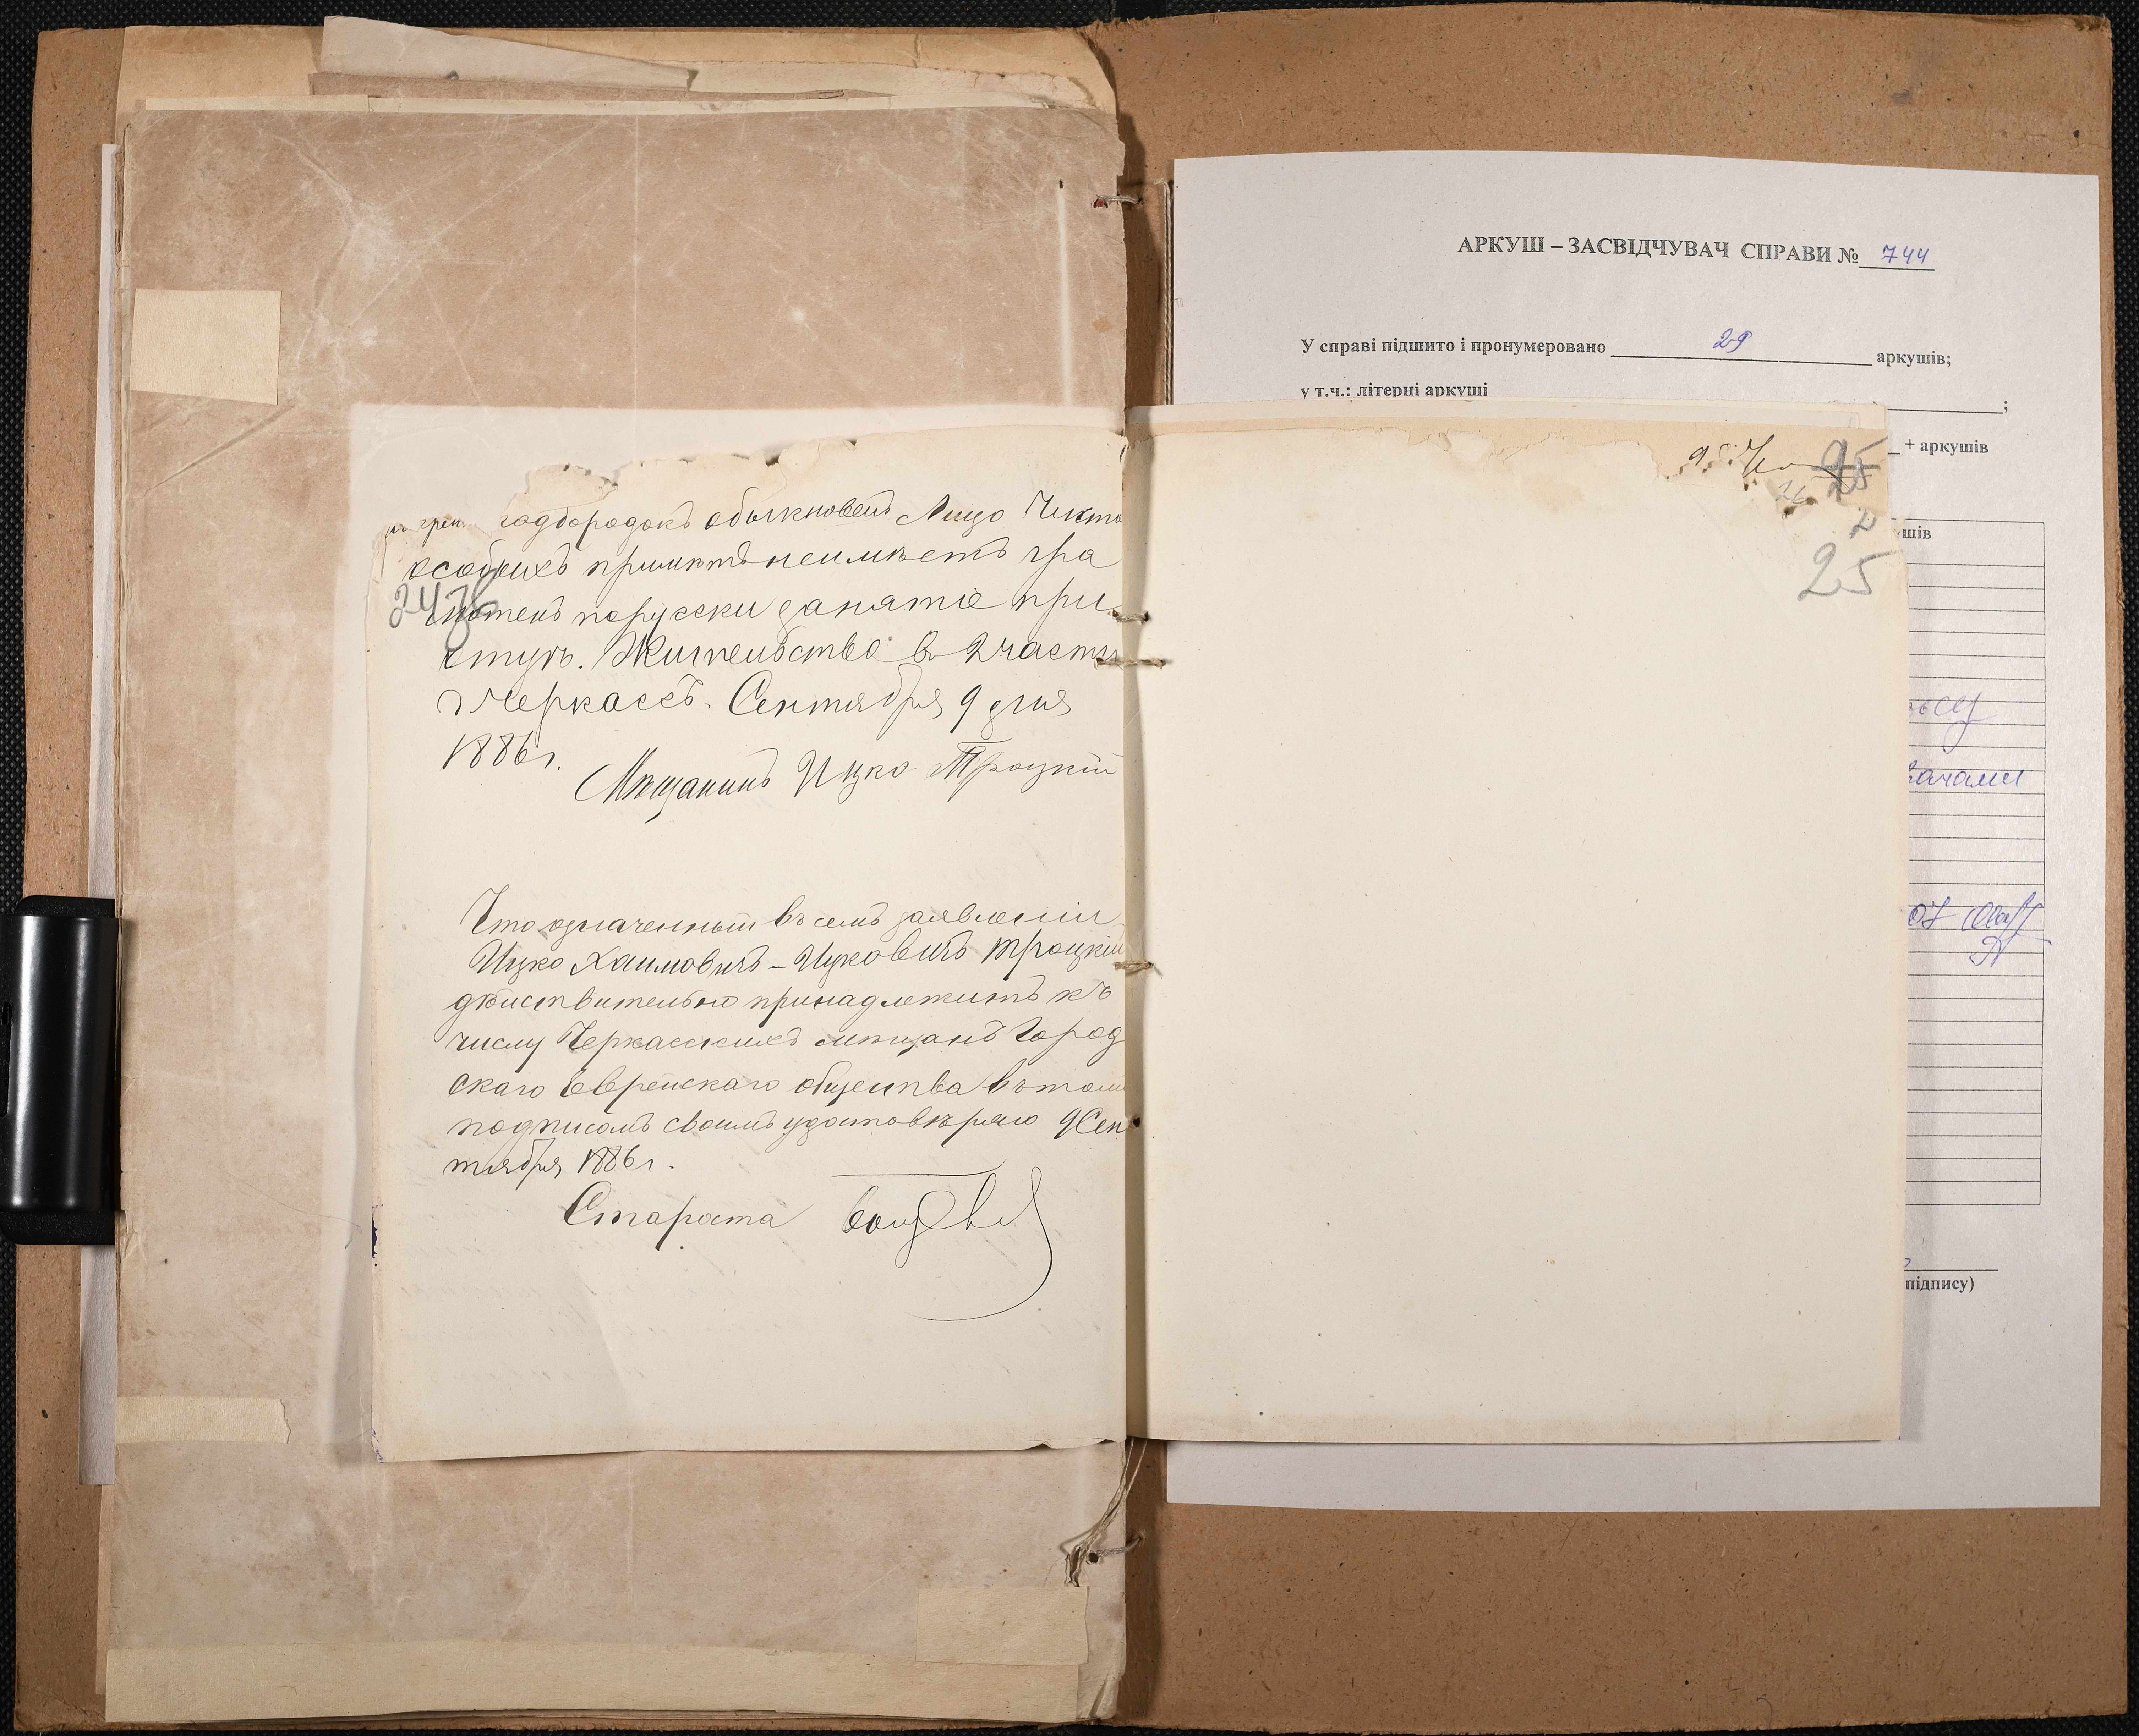 подбородокъ обыкновен Лицо Чисто
особыхъ примѣтъ неимѣетъ гра
мотенъ порусски занятіе при
стугъ. Жительство в 2 части
г Черкассъ. Сентября 9 дня
1886 г.
Мѣщанинъ Ицко Троцкій
Что означенный въ семъ заявленіи
Ицко Хаимовичъ - Ицковичъ Троцкій
дѣйствительно принадлежитъ къ
числу Черкасскихъ мѣщанъ Город
скаго Еврейскаго общества въ томъ
подписомъ своимъ удостовѣряю 9 Сен
тября 1886 г.
Староста
25
25
АРКУШ – ЗАСВІДЧУВАЧ СПРАВИ № 744
У справі підшито і пронумеровано 29 аркушів;
у т.ч.: літерні аркуші ;
+ аркушів
підпису)